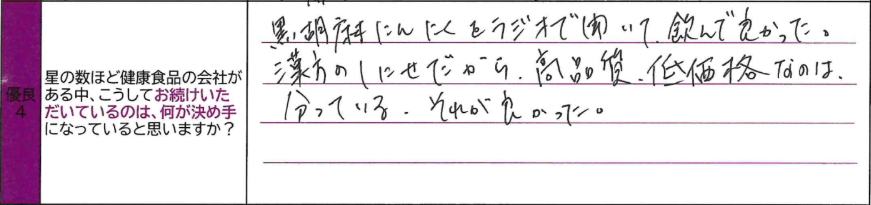 優良
4
星の数ほど健康食品の会社が
ある中、こうしてお続けいた
だいているのは、何が決め手
になっていると思いますか？
黒胡麻にんにくをラジオで聞いて、飲んで良かった。
漢方のしにせだから、高品質、低価格なのは、
分っている。それが良かった。